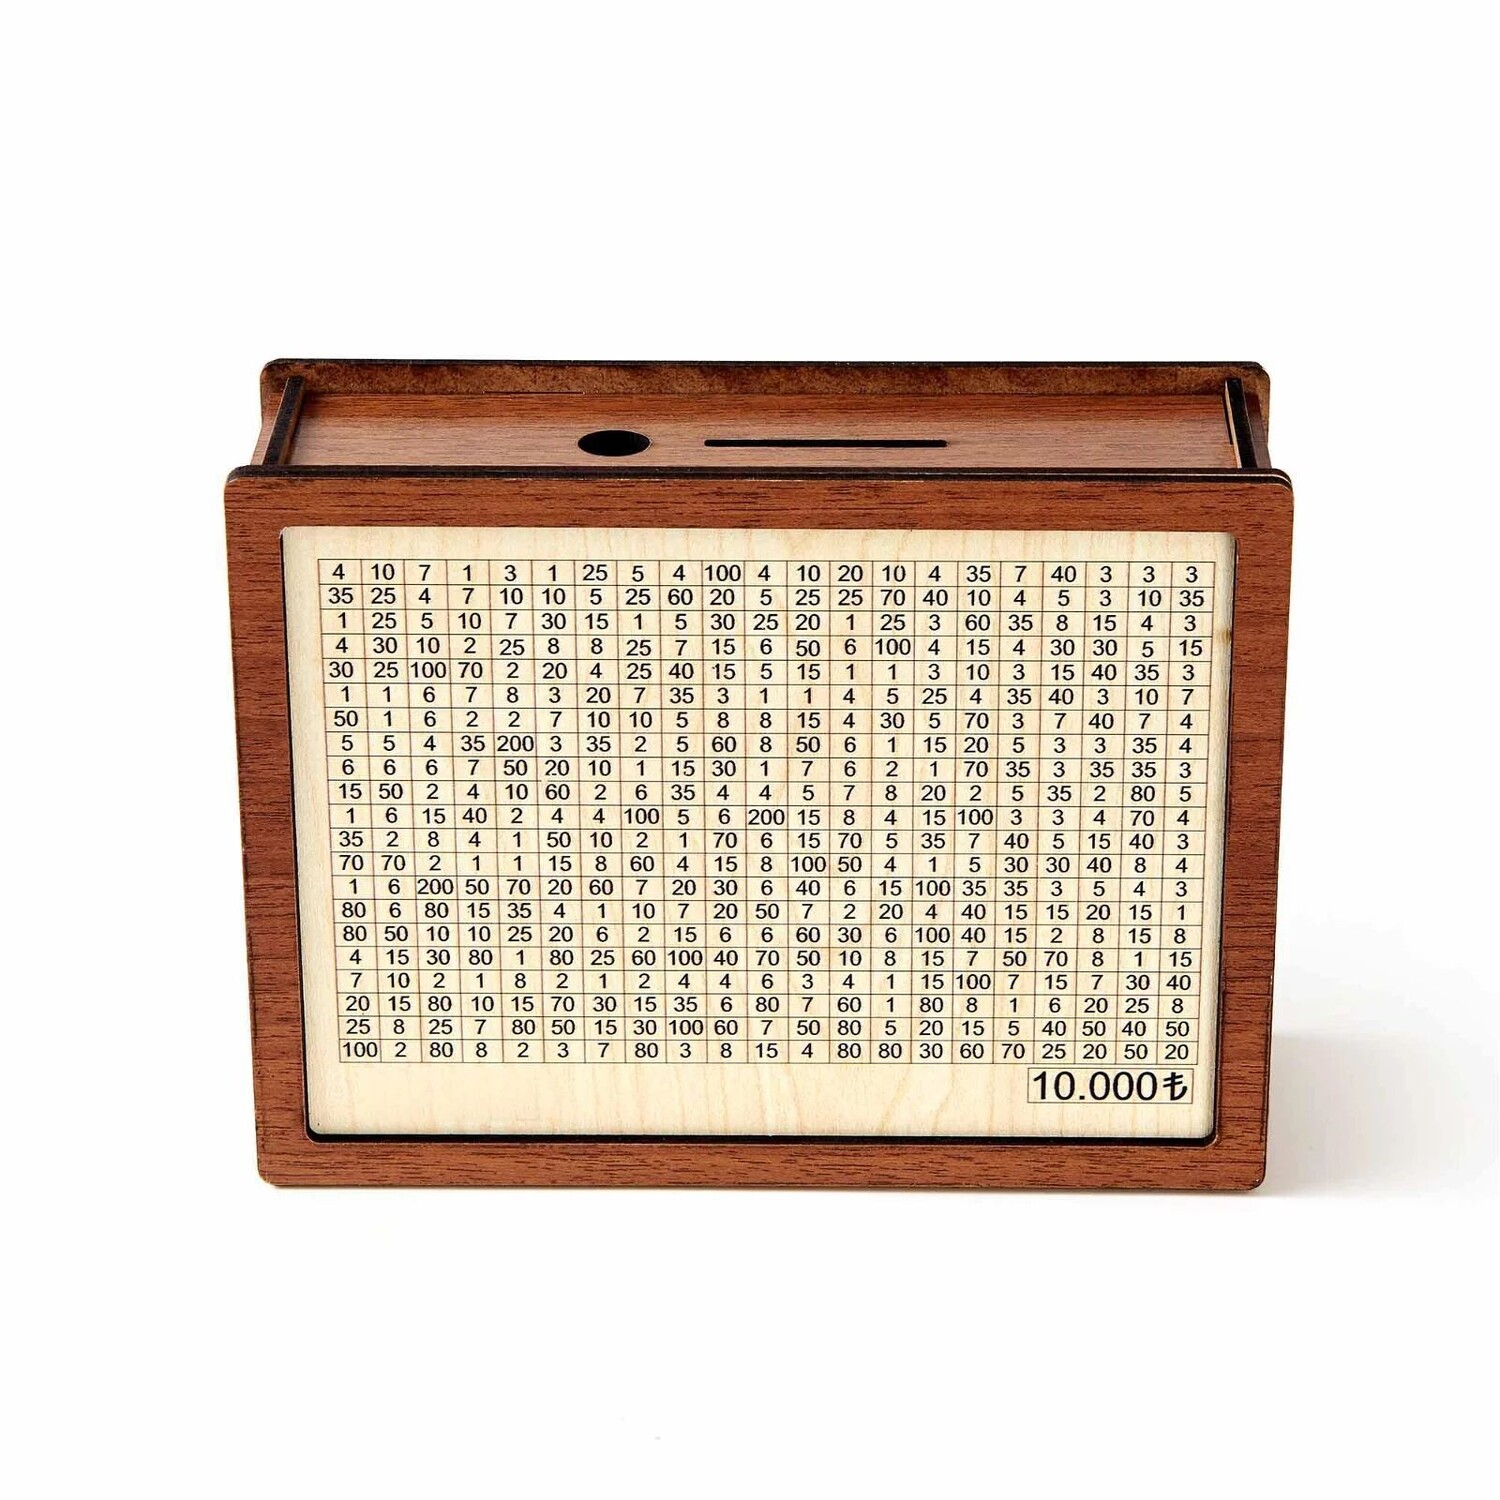 4 10 7 1 3 1 25 5 4 100 4 10 20 10 4 35 7 40 3 3 3
35 25 4 7 10 10 5 25 60 20 5 25 25 70 40 10 4 5 3 10 35
1 25 5 10 7 30 15 1 5 30 25 20 1 25 3 60 35 8 15 4 3
4 30 10 2 25 8 8 25 7 15 6 50 6 100 4 15 4 30 30 5 15
30 25 100 70 2 20 4 25 40 15 5 15 1 1 3 10 3 15 40 35 3
1 1 6 7 8 3 20 7 35 3 1 1 4 5 25 4 35 40 3 10 7
50 1 6 2 2 7 10 10 5 8 8 15 4 30 5 70 3 7 40 7 4
5 5 4 35 200 3 35 2 5 60 8 50 6 1 15 20 5 3 3 35 4
6 6 6 7 50 20 10 1 15 30 1 7 6 2 1 70 35 3 35 35 3
15 50 2 4 10 60 2 6 35 4 4 5 7 8 20 2 5 35 2 80 5
1 6 15 40 2 4 4 100 5 6 200 15 8 4 15 100 3 3 4 70 4
35 2 8 4 1 50 10 2 1 70 6 15 70 5 35 7 40 5 15 40 3
70 70 2 1 1 15 8 60 4 15 8 100 50 4 1 5 30 30 40 8 4
1 6 200 50 70 20 60 7 20 30 6 40 6 15 100 35 35 3 5 4 3
80 6 80 15 35 4 1 10 7 20 50 7 2 20 4 40 15 15 20 15 1
80 50 10 10 25 20 6 2 15 6 6 60 30 6 100 40 15 2 8 15 8
4 15 30 80 1 80 25 60 100 40 70 50 10 8 15 7 50 70 8 1 15
7 10 2 1 8 2 1 2 4 4 6 3 4 1 15 100 7 15 7 30 40
20 15 80 10 15 70 30 15 35 6 80 7 60 1 80 8 1 6 20 25 8
25 8 25 7 80 50 15 30 100 60 7 50 80 5 20 15 5 40 50 40 50
100 2 80 8 2 3 7 80 3 8 15 4 80 80 30 60 70 25 20 50 20
10.000₺